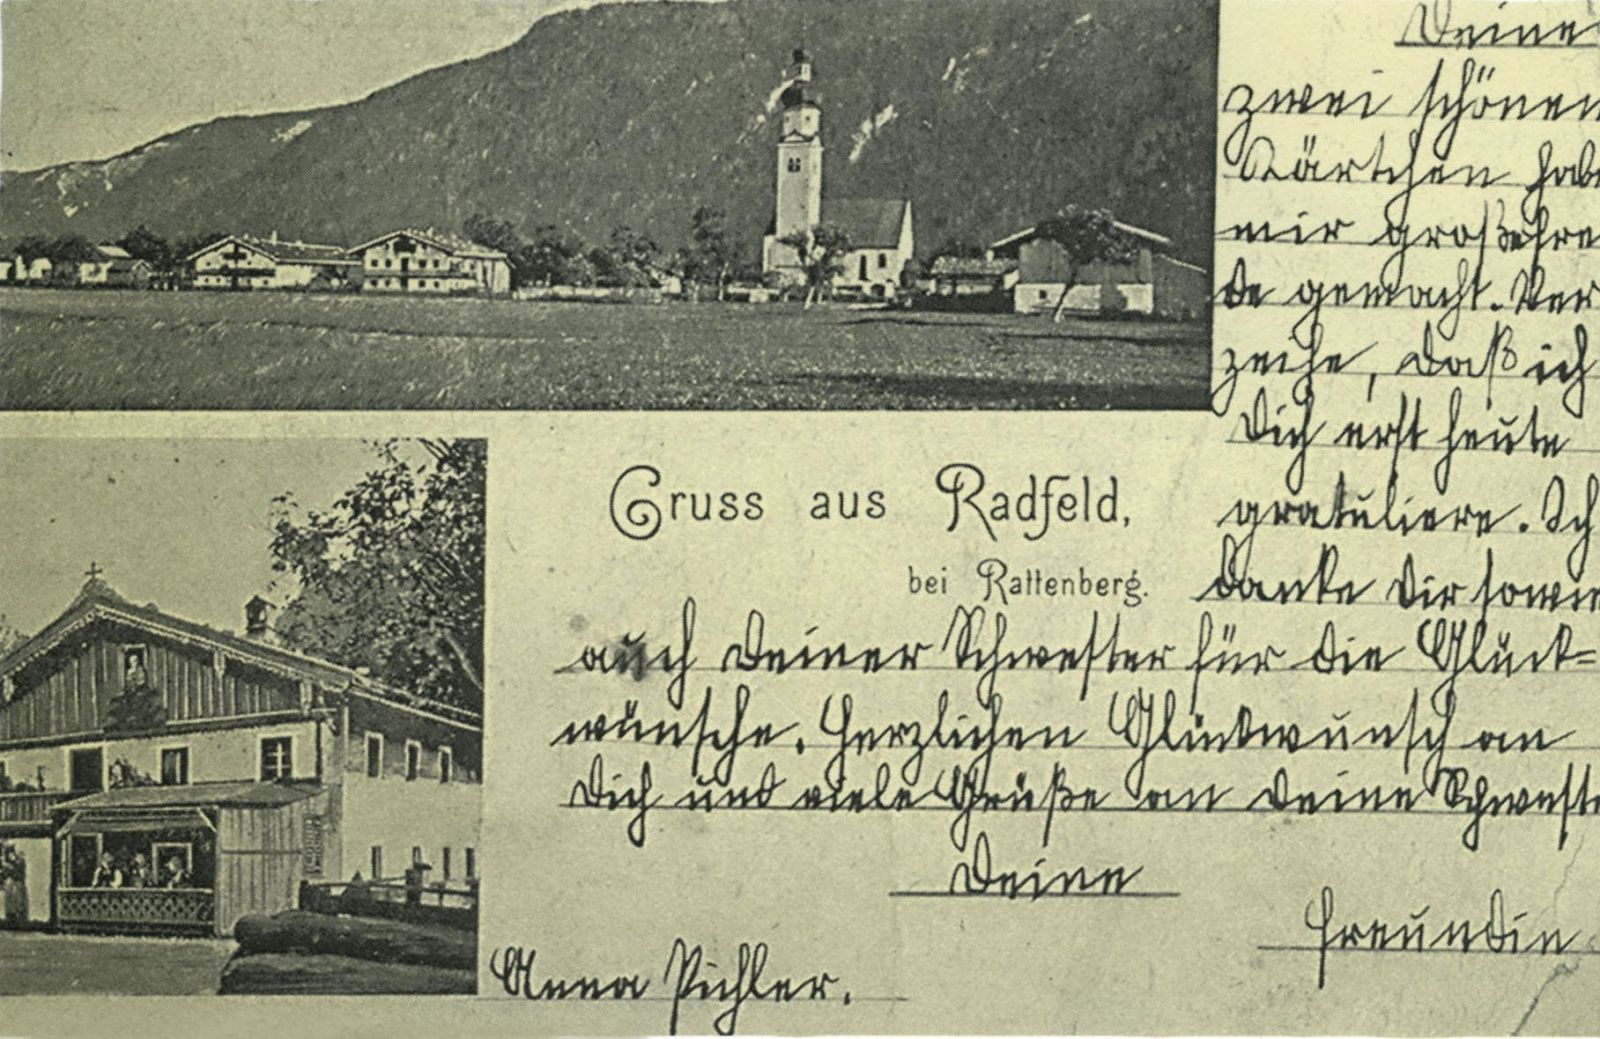 Deine
zwei schönen
Kärtchen habe
mir große Freu
de gemacht. Ver
zeihe, daß ich
Dich erst heute
gratuliere. Ich
danke Dir sowie
Gruss aus Radfeld,
bei Rattenberg.
auch Deiner Schwester für die Glück=
wünsche. Herzlichen Glückwunsch an
Dich und viele Grüße an Deine Schweste
Deine
Freundin
Anna Pichler.